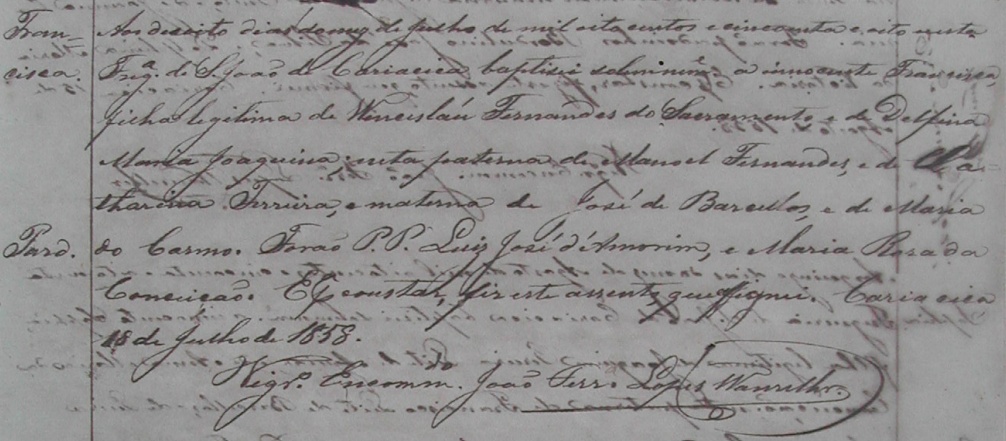 Fran- Aos desoito dias do mez de Julho de mil oitocentos e cincoenta e oito nesta
cisca. Freg.ª de S. João de Cariacica baptisei solemnem.e a innocente Francisca,
filha legitima de Wenceslau Fernandes do Sacramento e de Delfina
Maria Joaquina, neta paterna de Manoel Fernandes, e de Ca-
tharina Ferreira, e materna de José de Barcellos, e de Maria
Pard. do Carmo. Forão P.P. Luiz José d'Amorim, e Maria Rosa da
Conceição. E p.ª constar, fiz este assento, que assignei. Cariacica
18 de Julho de 1858.
Vigr.º Encomm.do João Lopes